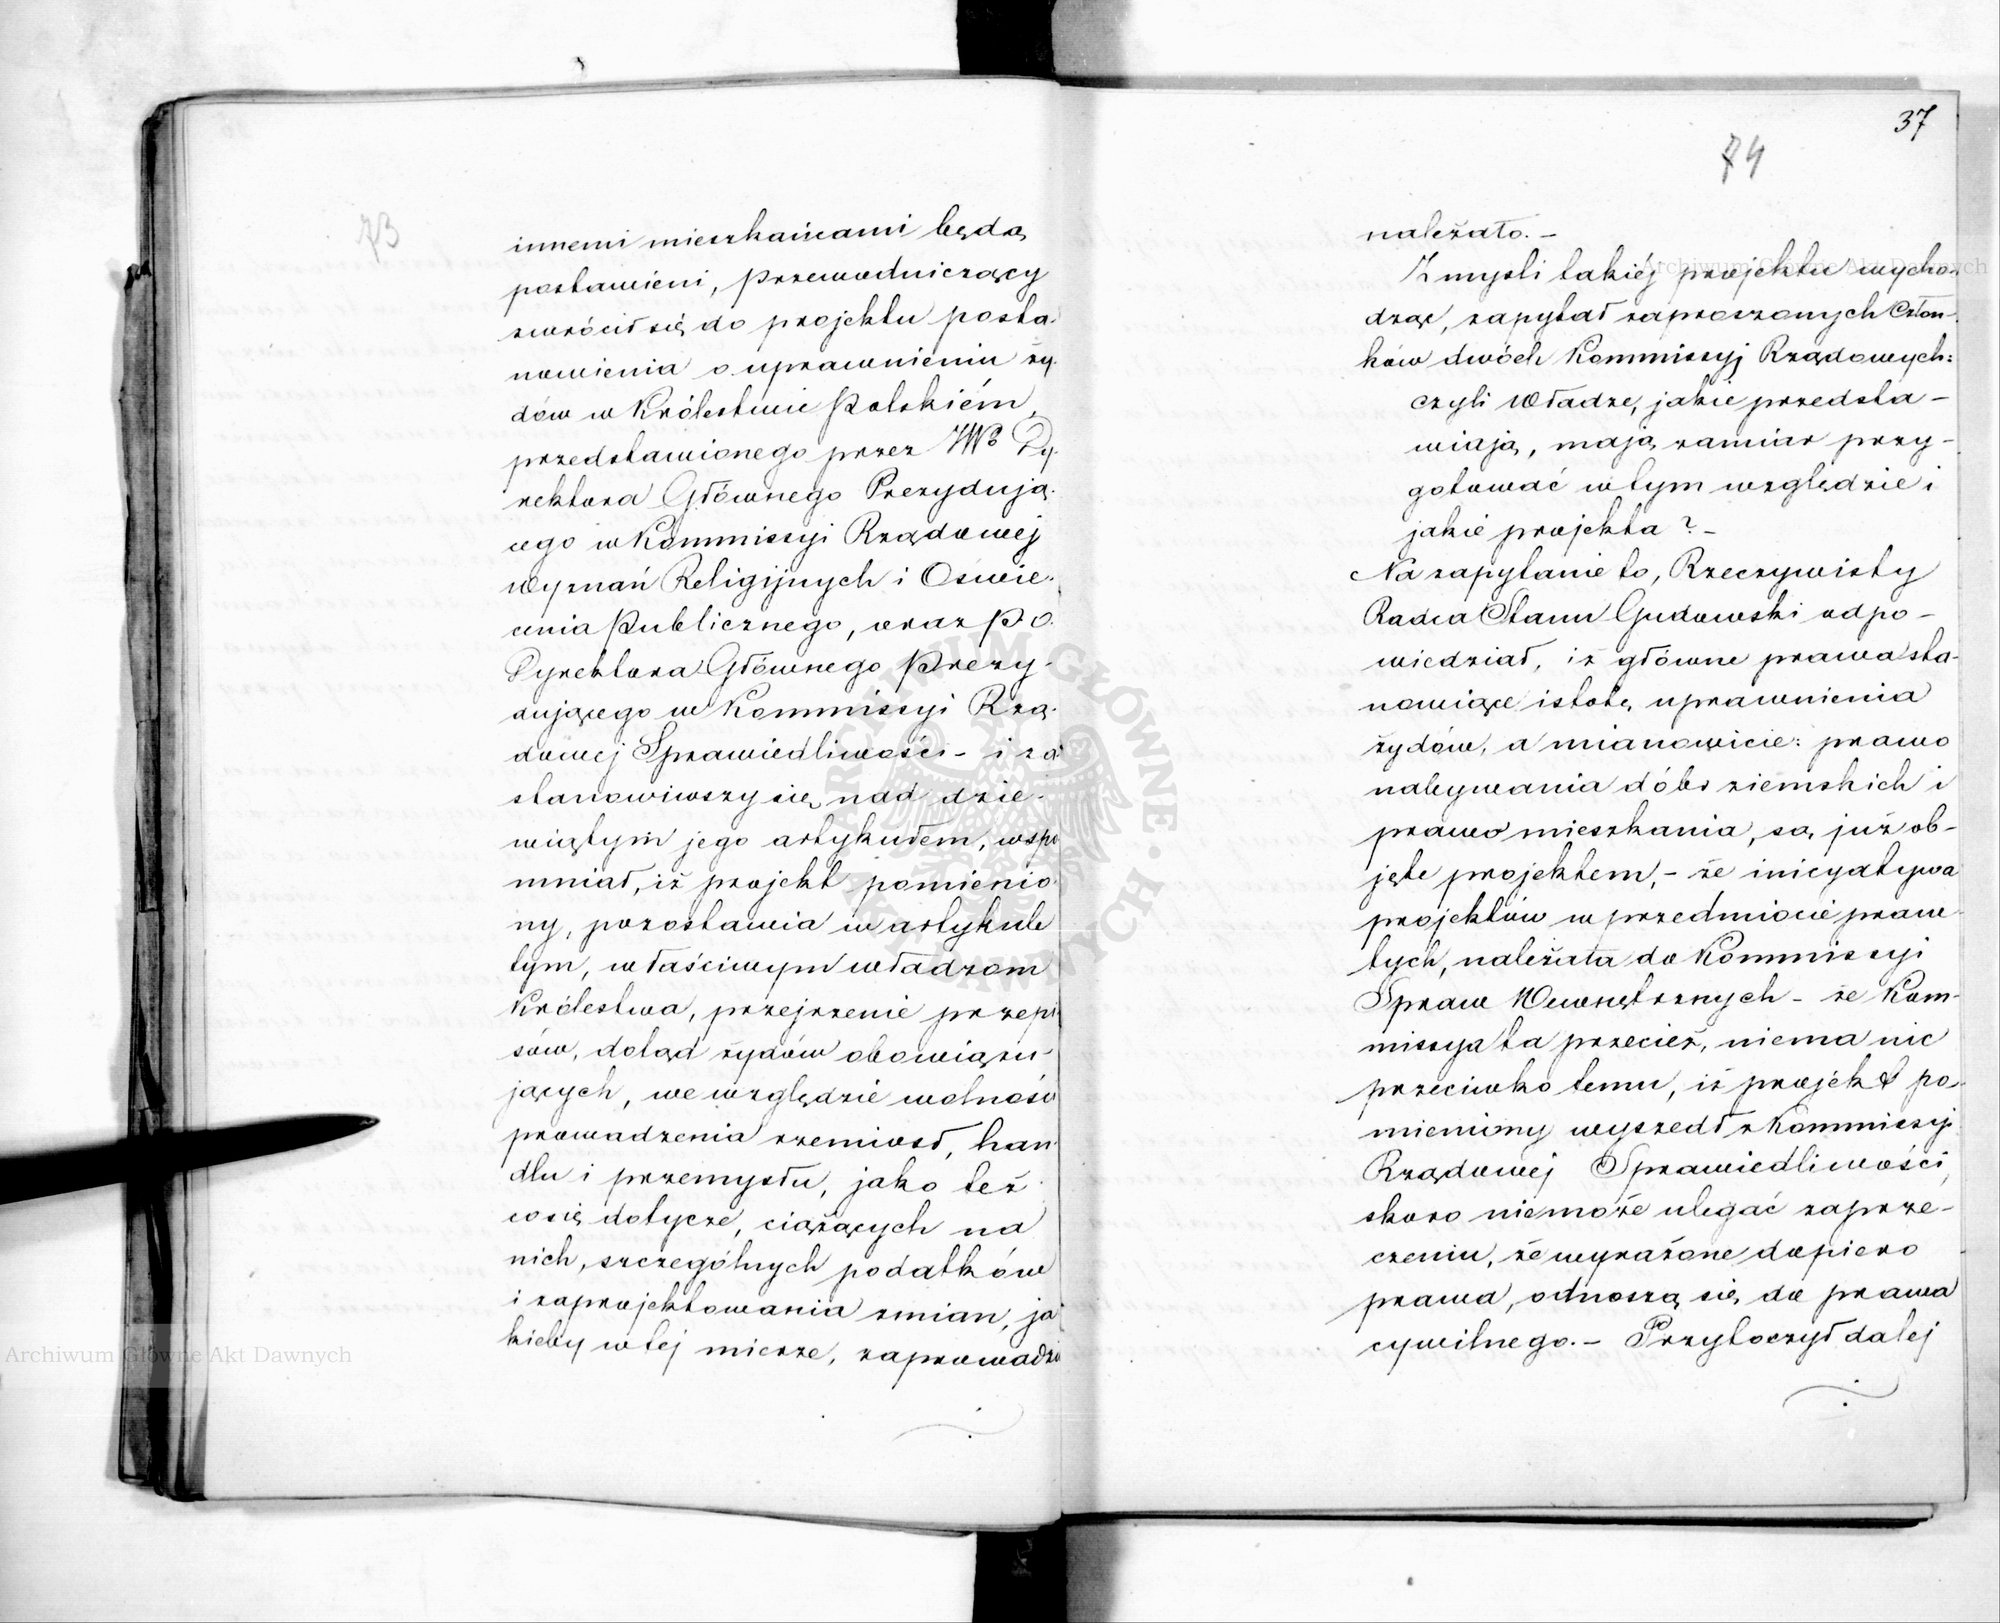 73
innemi mieszkańcami będą
postawieni, Przewodniczący
zwrócił się do projektu posta-
nowienia o uprawnieniu ży-
dów w Królestwie Polskiém,
przedstawionego przez JWo Dy-
rektora Głównego Prezydują-
cego w Kommissyi Rządowej
Wyznań Religijnych i Oświe-
cenia Publicznego, oraz P. O.
Dyrektora Głównego Prezy-
dującego w Kommissyi Rzą-
dowej Sprawiedliwości - i za-
stanowiwszy się nad dzie-
wiątym jego artykułem, wspo-
mniał, iż projekt pomienio-
ny, pozostawia w artykule
tym, właściwym władzom
Królestwa, przejrzenie przepi-
sów, dotąd żydów obowiązu-
jących, we względzie wolności
prowadzenia rzemiosł, han-
dlu i przemysłu, jako też
co się dotycze, ciążących na
nich, szczególnych podatków
i zaprojektowania zmian, ja-
kieby w tej mierze, zaprowadzić
37
74
należało. -
Z mysli takiéj projektu wycho-
dząc, zapytał zaproszonych Człon-
ków dwóch Kommissyj Rządowych:
czyli Władze, jakie przedsta-
wiają, mają zamiar przy-
gotować w tym względzie i
jakie projekta? -
Na zapytanie to, Rzeczywisty
Radca Stanu Gudowski odpo-
wiedział, iż główne prawa sta-
nowiące istotę uprawnienia
żydów, a mianowicie: prawo
nabywania dóbr ziemskich i
prawo mieszkania, są już ob-
jęte projektem, - że inicyatywa
projektów w przedmiocie praw
tych, należała do Kommissyi
Spraw Wewnętrznych - że Kom-
missya ta przecież, niema nic
przeciwko temu, iż projekt po-
mieniony wyszedł z Kommissyi
Rządowej Sprawiedliwości,
skoro niemoże ulegać zaprze-
czeniu, że wyrażone dopiero
prawa, odnoszą się do prawa
cywilnego. - Przytoczył dalej
Archiwum Główne Akt Dawnych
Archiwum Główne Akt Dawnych
ARCHIWUM GŁÓWNE AKT DAWNYCH